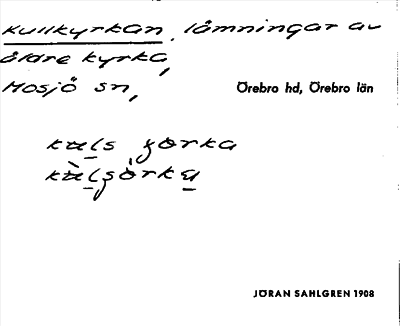 Kullkyrkan, lämningar av
äldre kyrka,
Mosjö sn,
Örebro hd, Örebro län
JÖRAN SAHLGREN 1908